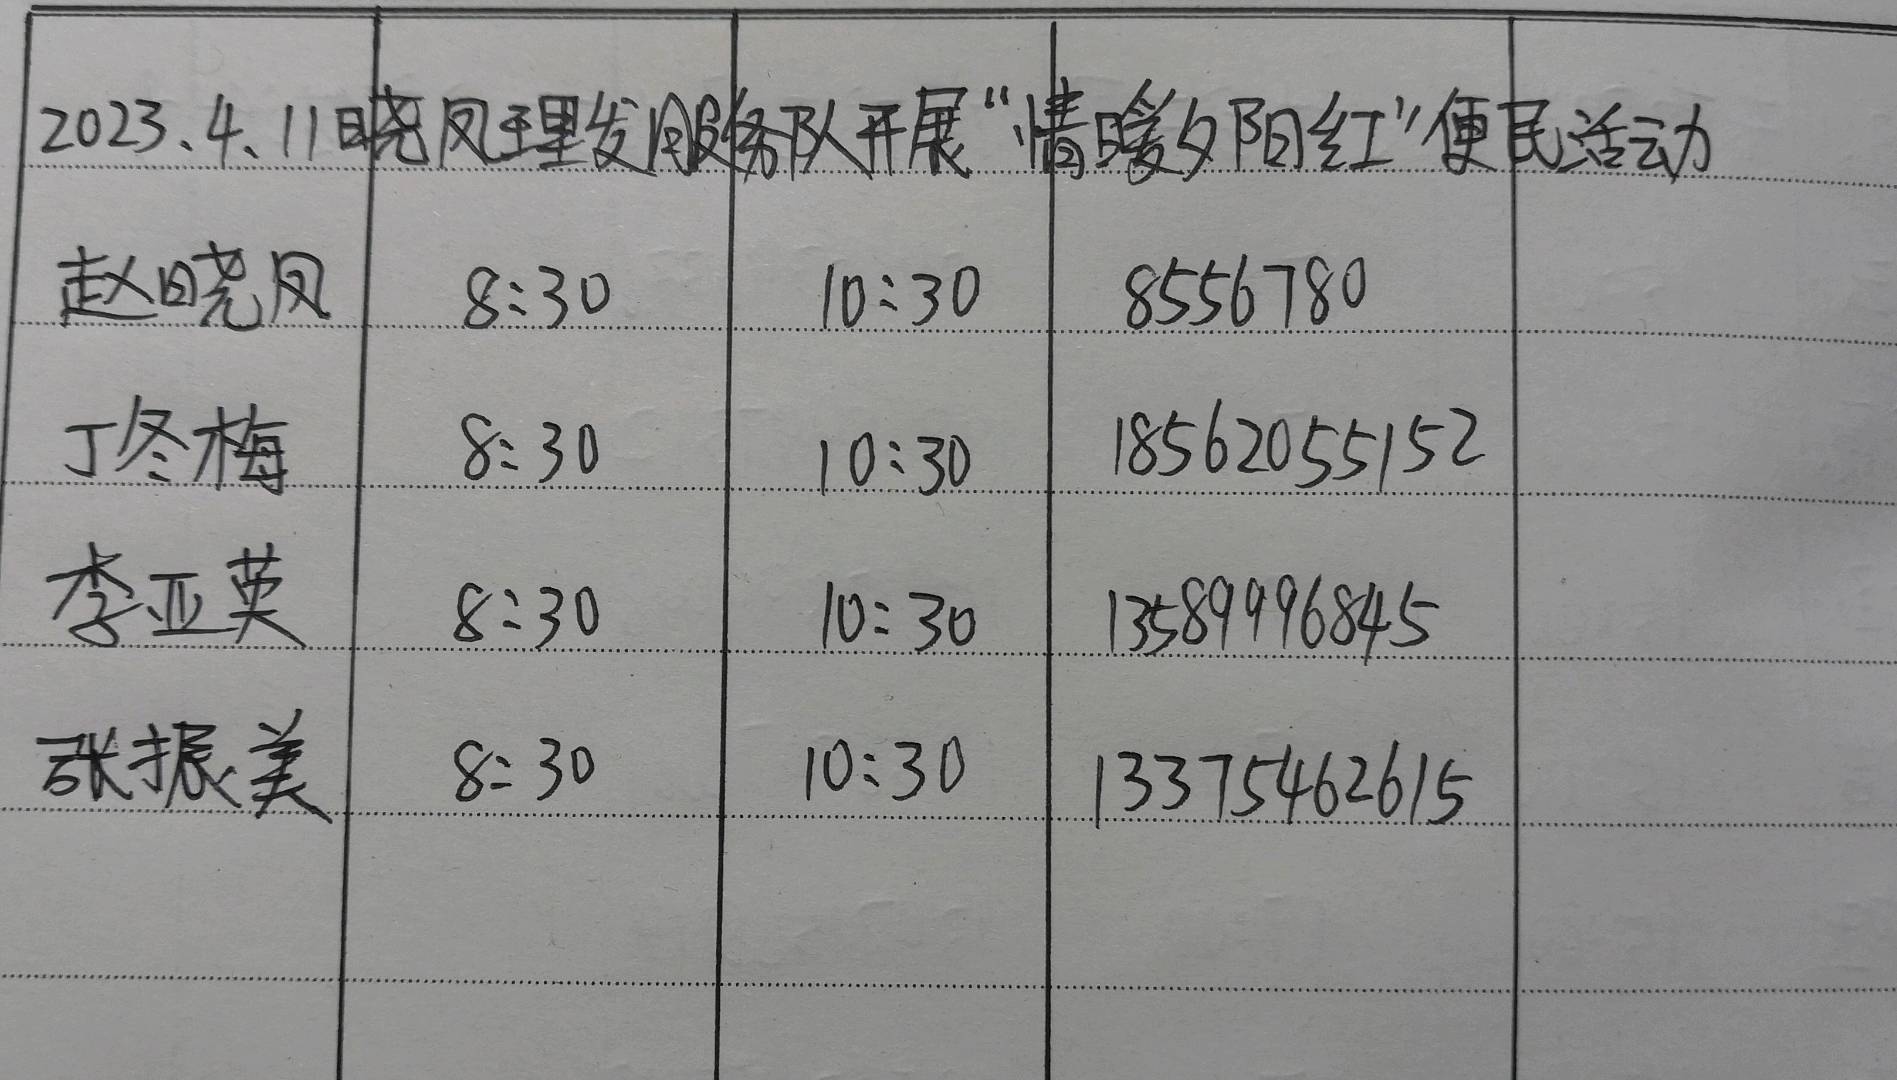 2023.4.11晓凤理发服务队开展“情暖夕阳红”便民活动
赵晓凤 8:30 10:30 8556780
丁冬梅 8:30 10:30 18562055152
李亚英 8:30 10:30 13589996845
张振美 8:30 10:30 13375462615